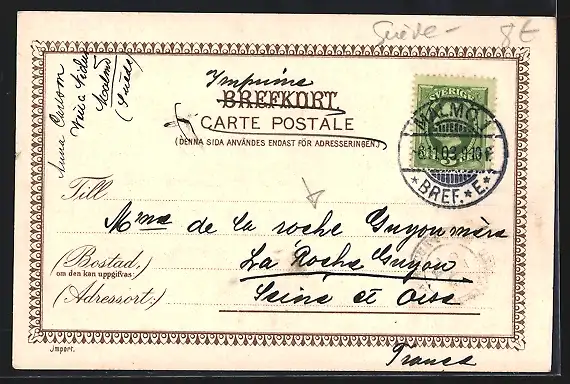 Suède - 8E
Anna Carlson
Malmö
(Suède)
Imprimé
BREFKORT.
CARTE POSTALE
(DENNA SIDA ANVÄNDES ENDAST FÖR ADRESSERINGEN.)
SVERIGE
MALMÖ
BREF. * E *
Till
Mme de la roche Guyon
(Bostad,
om den kan uppgifvas:)
La Roche Guyon
(Adressort:)
Seine et Oise
France
Import.